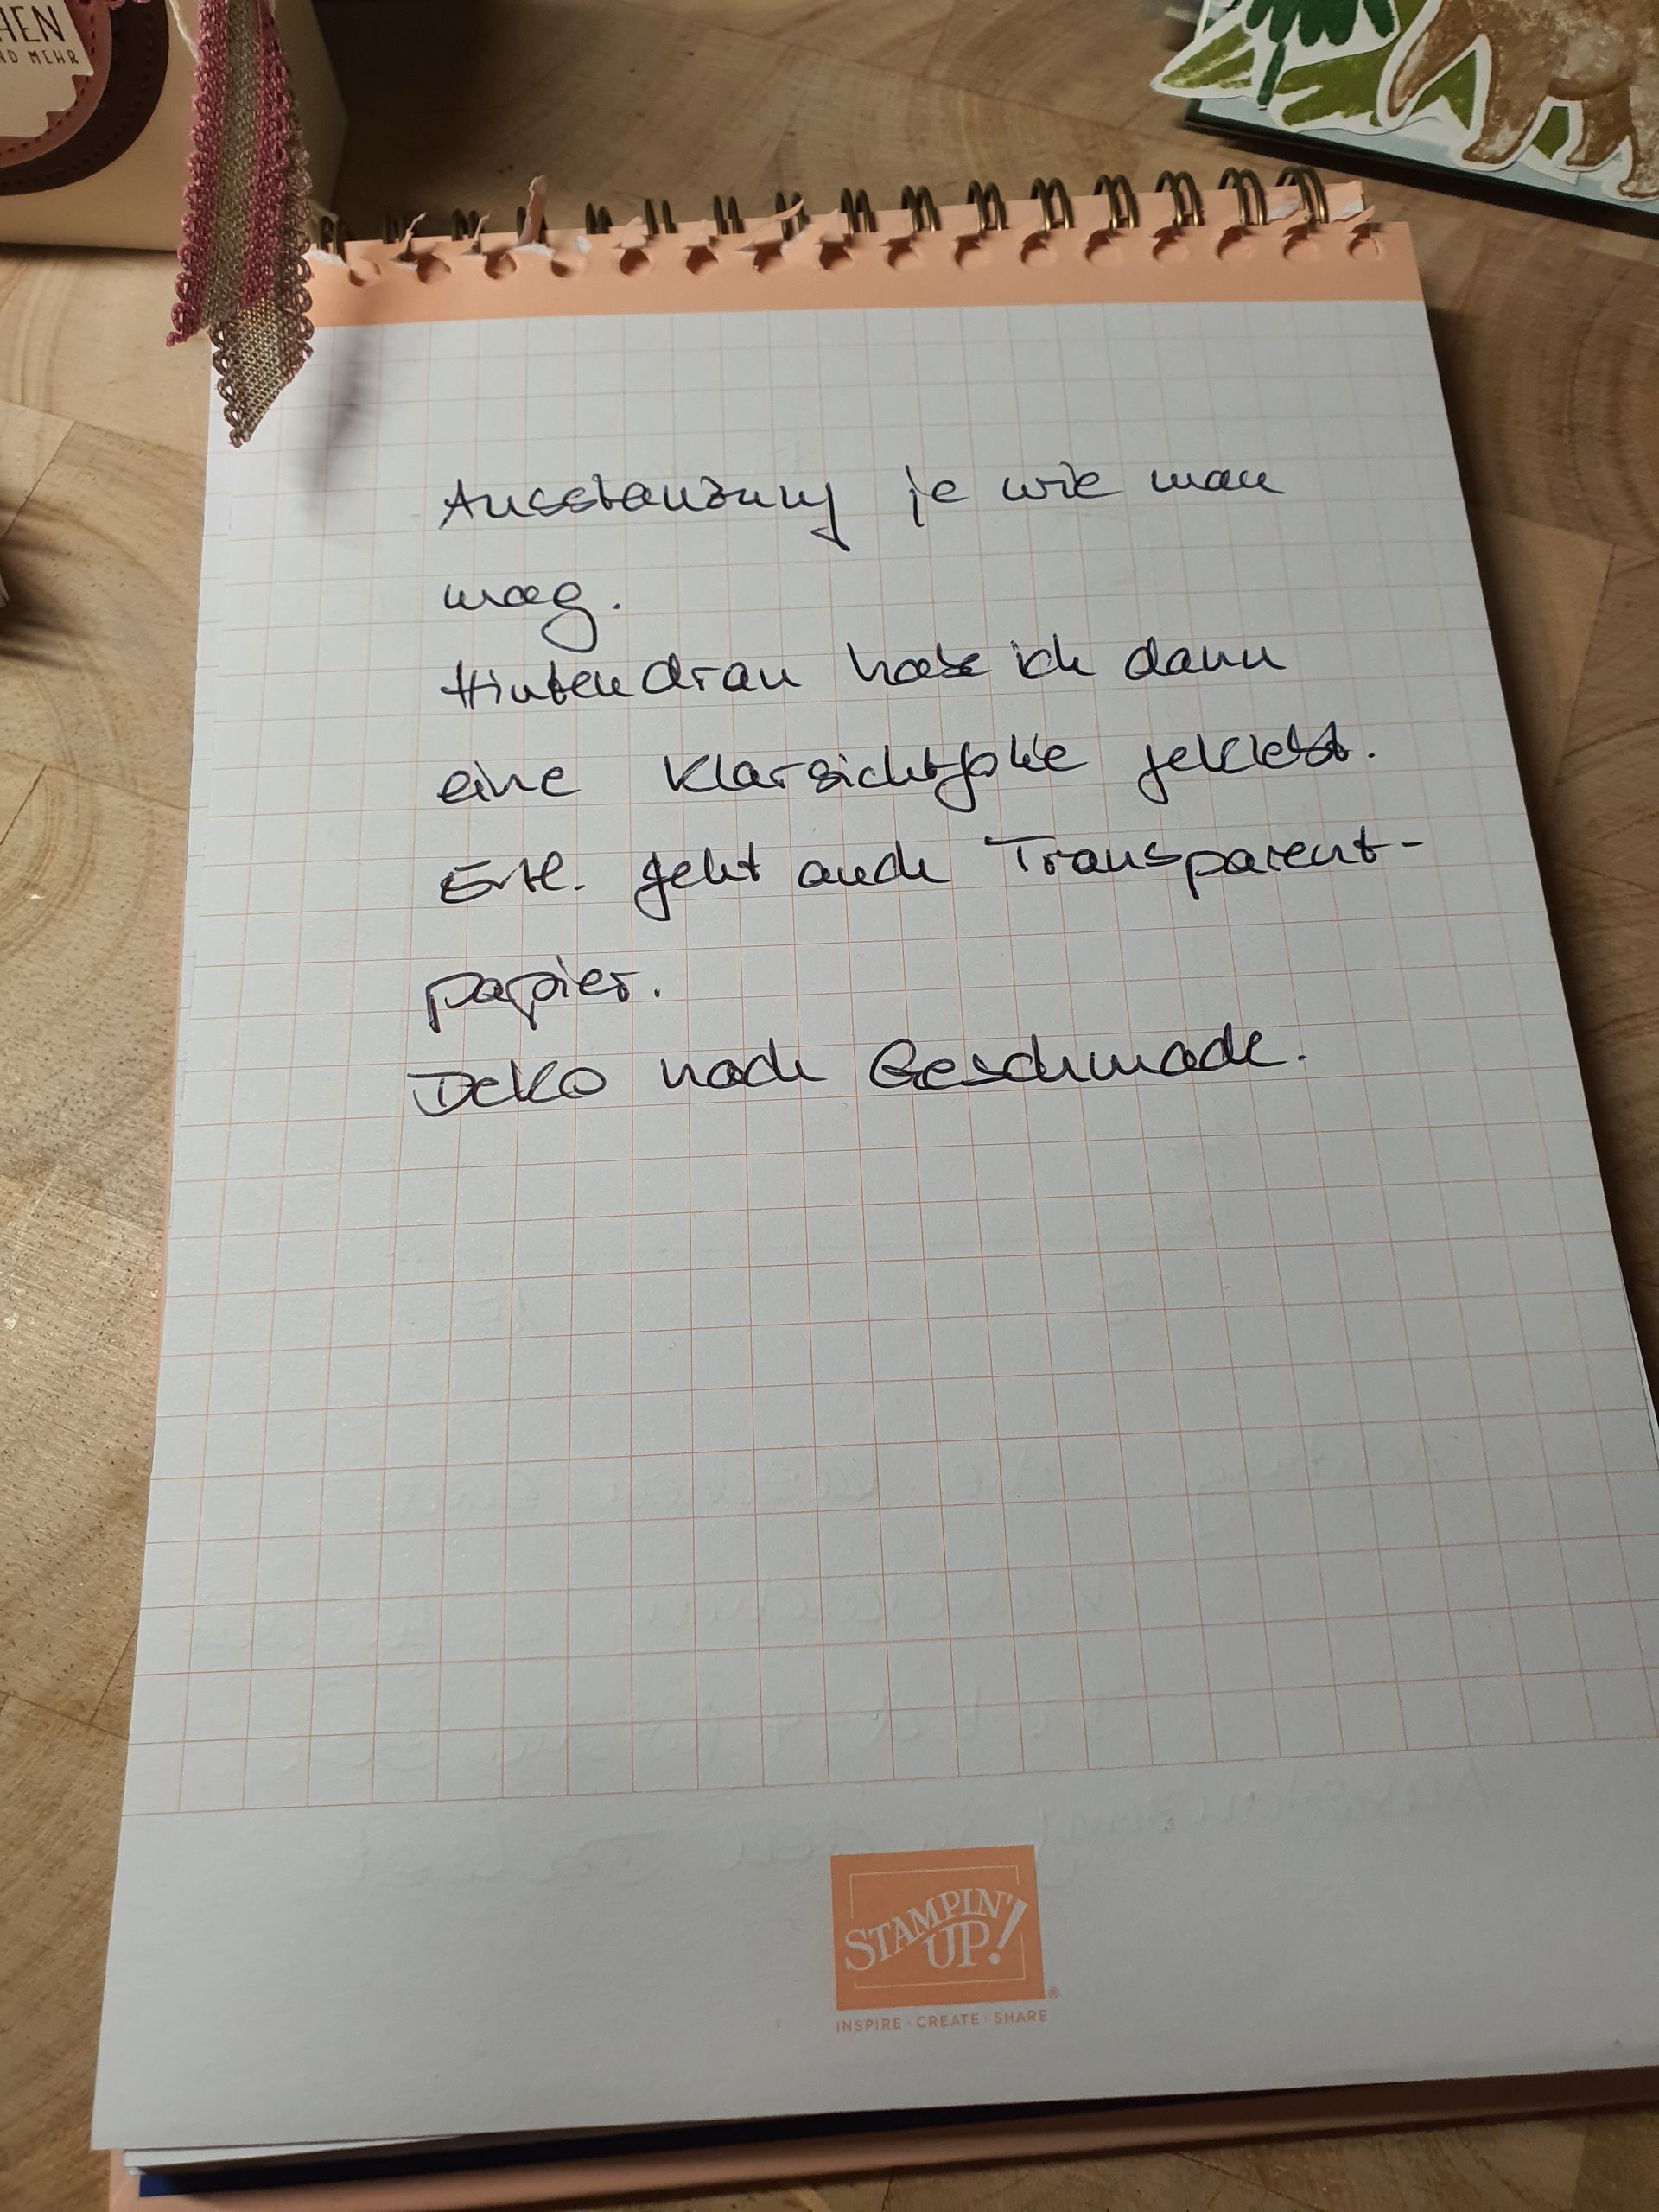 HEN
ND MEHR
Ausstanzung je wie man
mag.
Hinten dran habe ich dann
eine Klarsichtfolie geklebt.
Evtl. geht auch Transparent-
papier.
Deko nach Geschmack.
STAMPIN'
UP!
®
INSPIRE · CREATE · SHARE